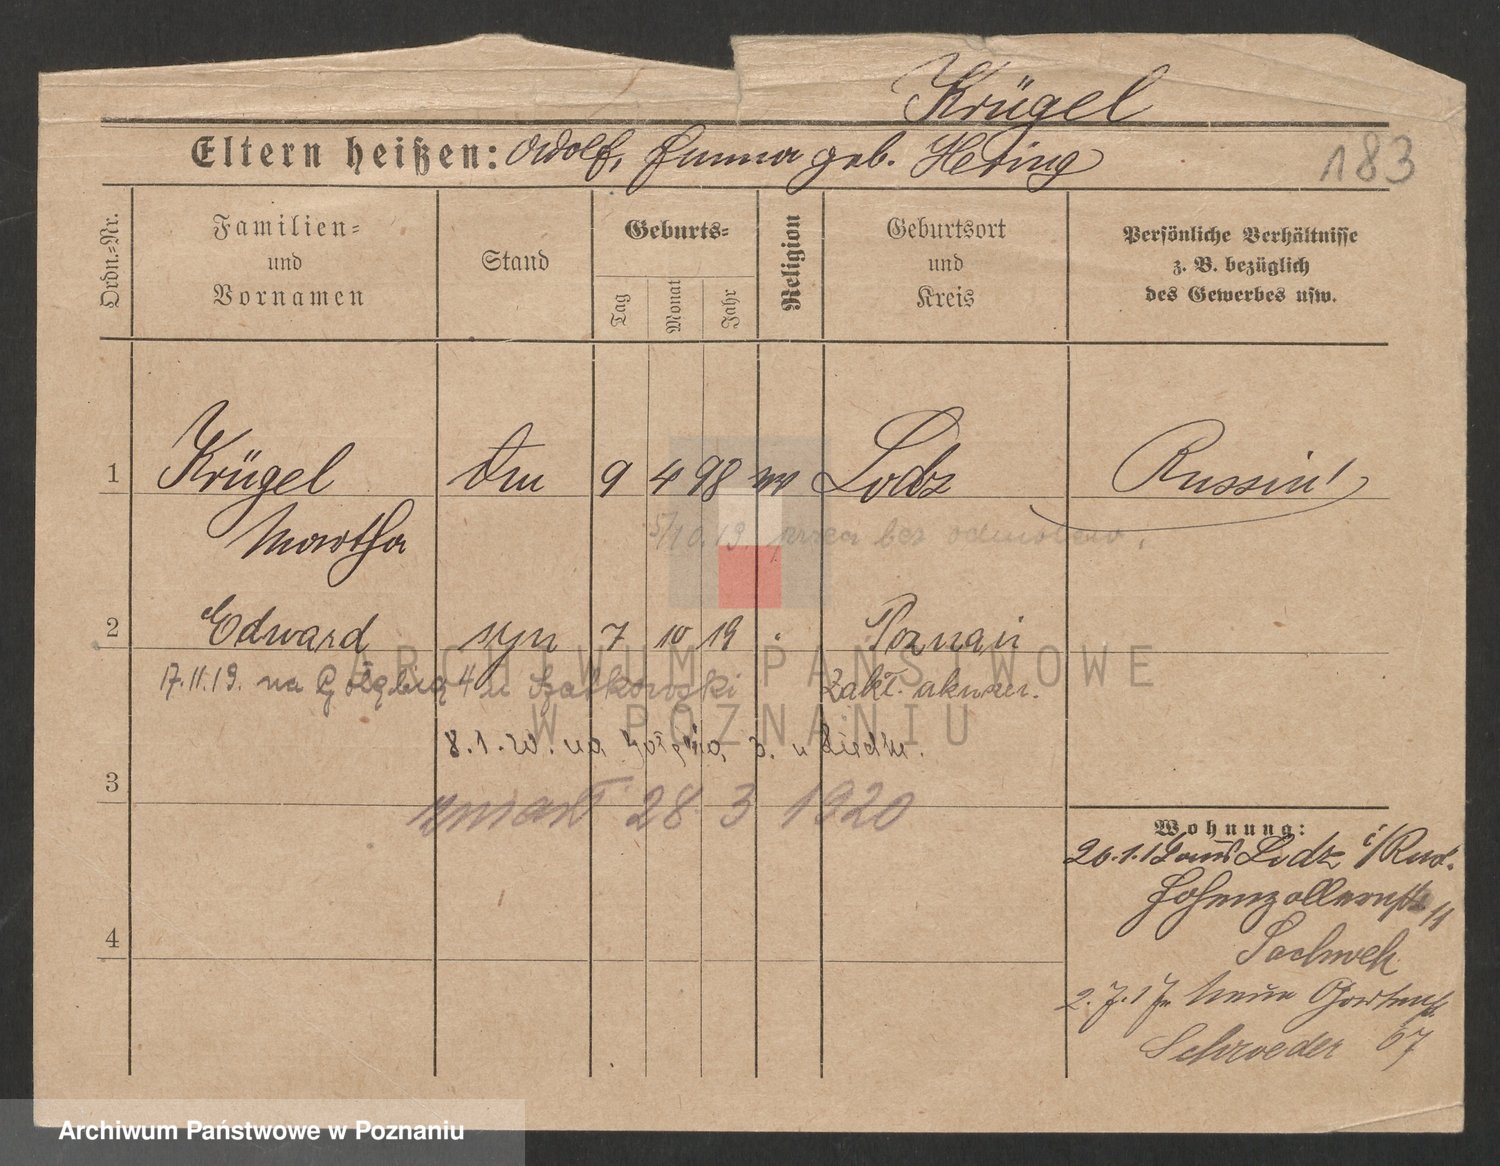 Krügel
Eltern heißen: Adolf, Emma geb. Hering
183
Ordn.-Nr.
Familien- und Vornamen
Stand
Geburts-
Tag
Monat
Jahr
Religion
Geburtsort und Kreis
Persönliche Verhältnisse z. B. bezüglich des Gewerbes usw.
1 Krügel 9 4 98 Lodz Russin
Martha
5/10.19
2 Edward syn 7 10 19 Poznań
17.11.19. na Gołębią 4 u Szatkowski Zakł. akuszer.
8.1.20. na
3
zmarł 28 3 1920
4
Wohnung:
20.1.1 aus Lodz i/Russ.
Hohenzollernstr 11
Sachweh
2.7.17 Neue Gartenstr.
Schroeder 67
ARCHIWUM PAŃSTWOWE
W POZNANIU
Archiwum Państwowe w Poznaniu